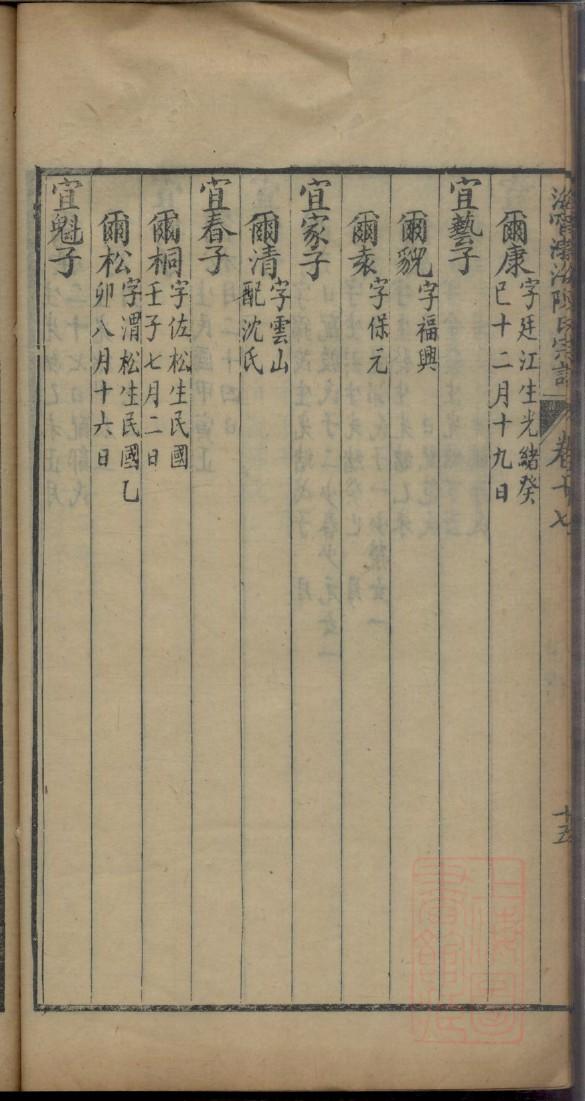 爾康 字廷江生光緒癸
巳十二月十九日
宜藝子
爾貌 字福興
爾袁 字保元
宜家子
爾清 字雲山
配沈氏
宜春子
爾桐 字佐松生民國
壬子七月二日
爾松 字渭松生民國乙
卯八月十六日
宜魁子
陳氏宗譜
卷十七
十五